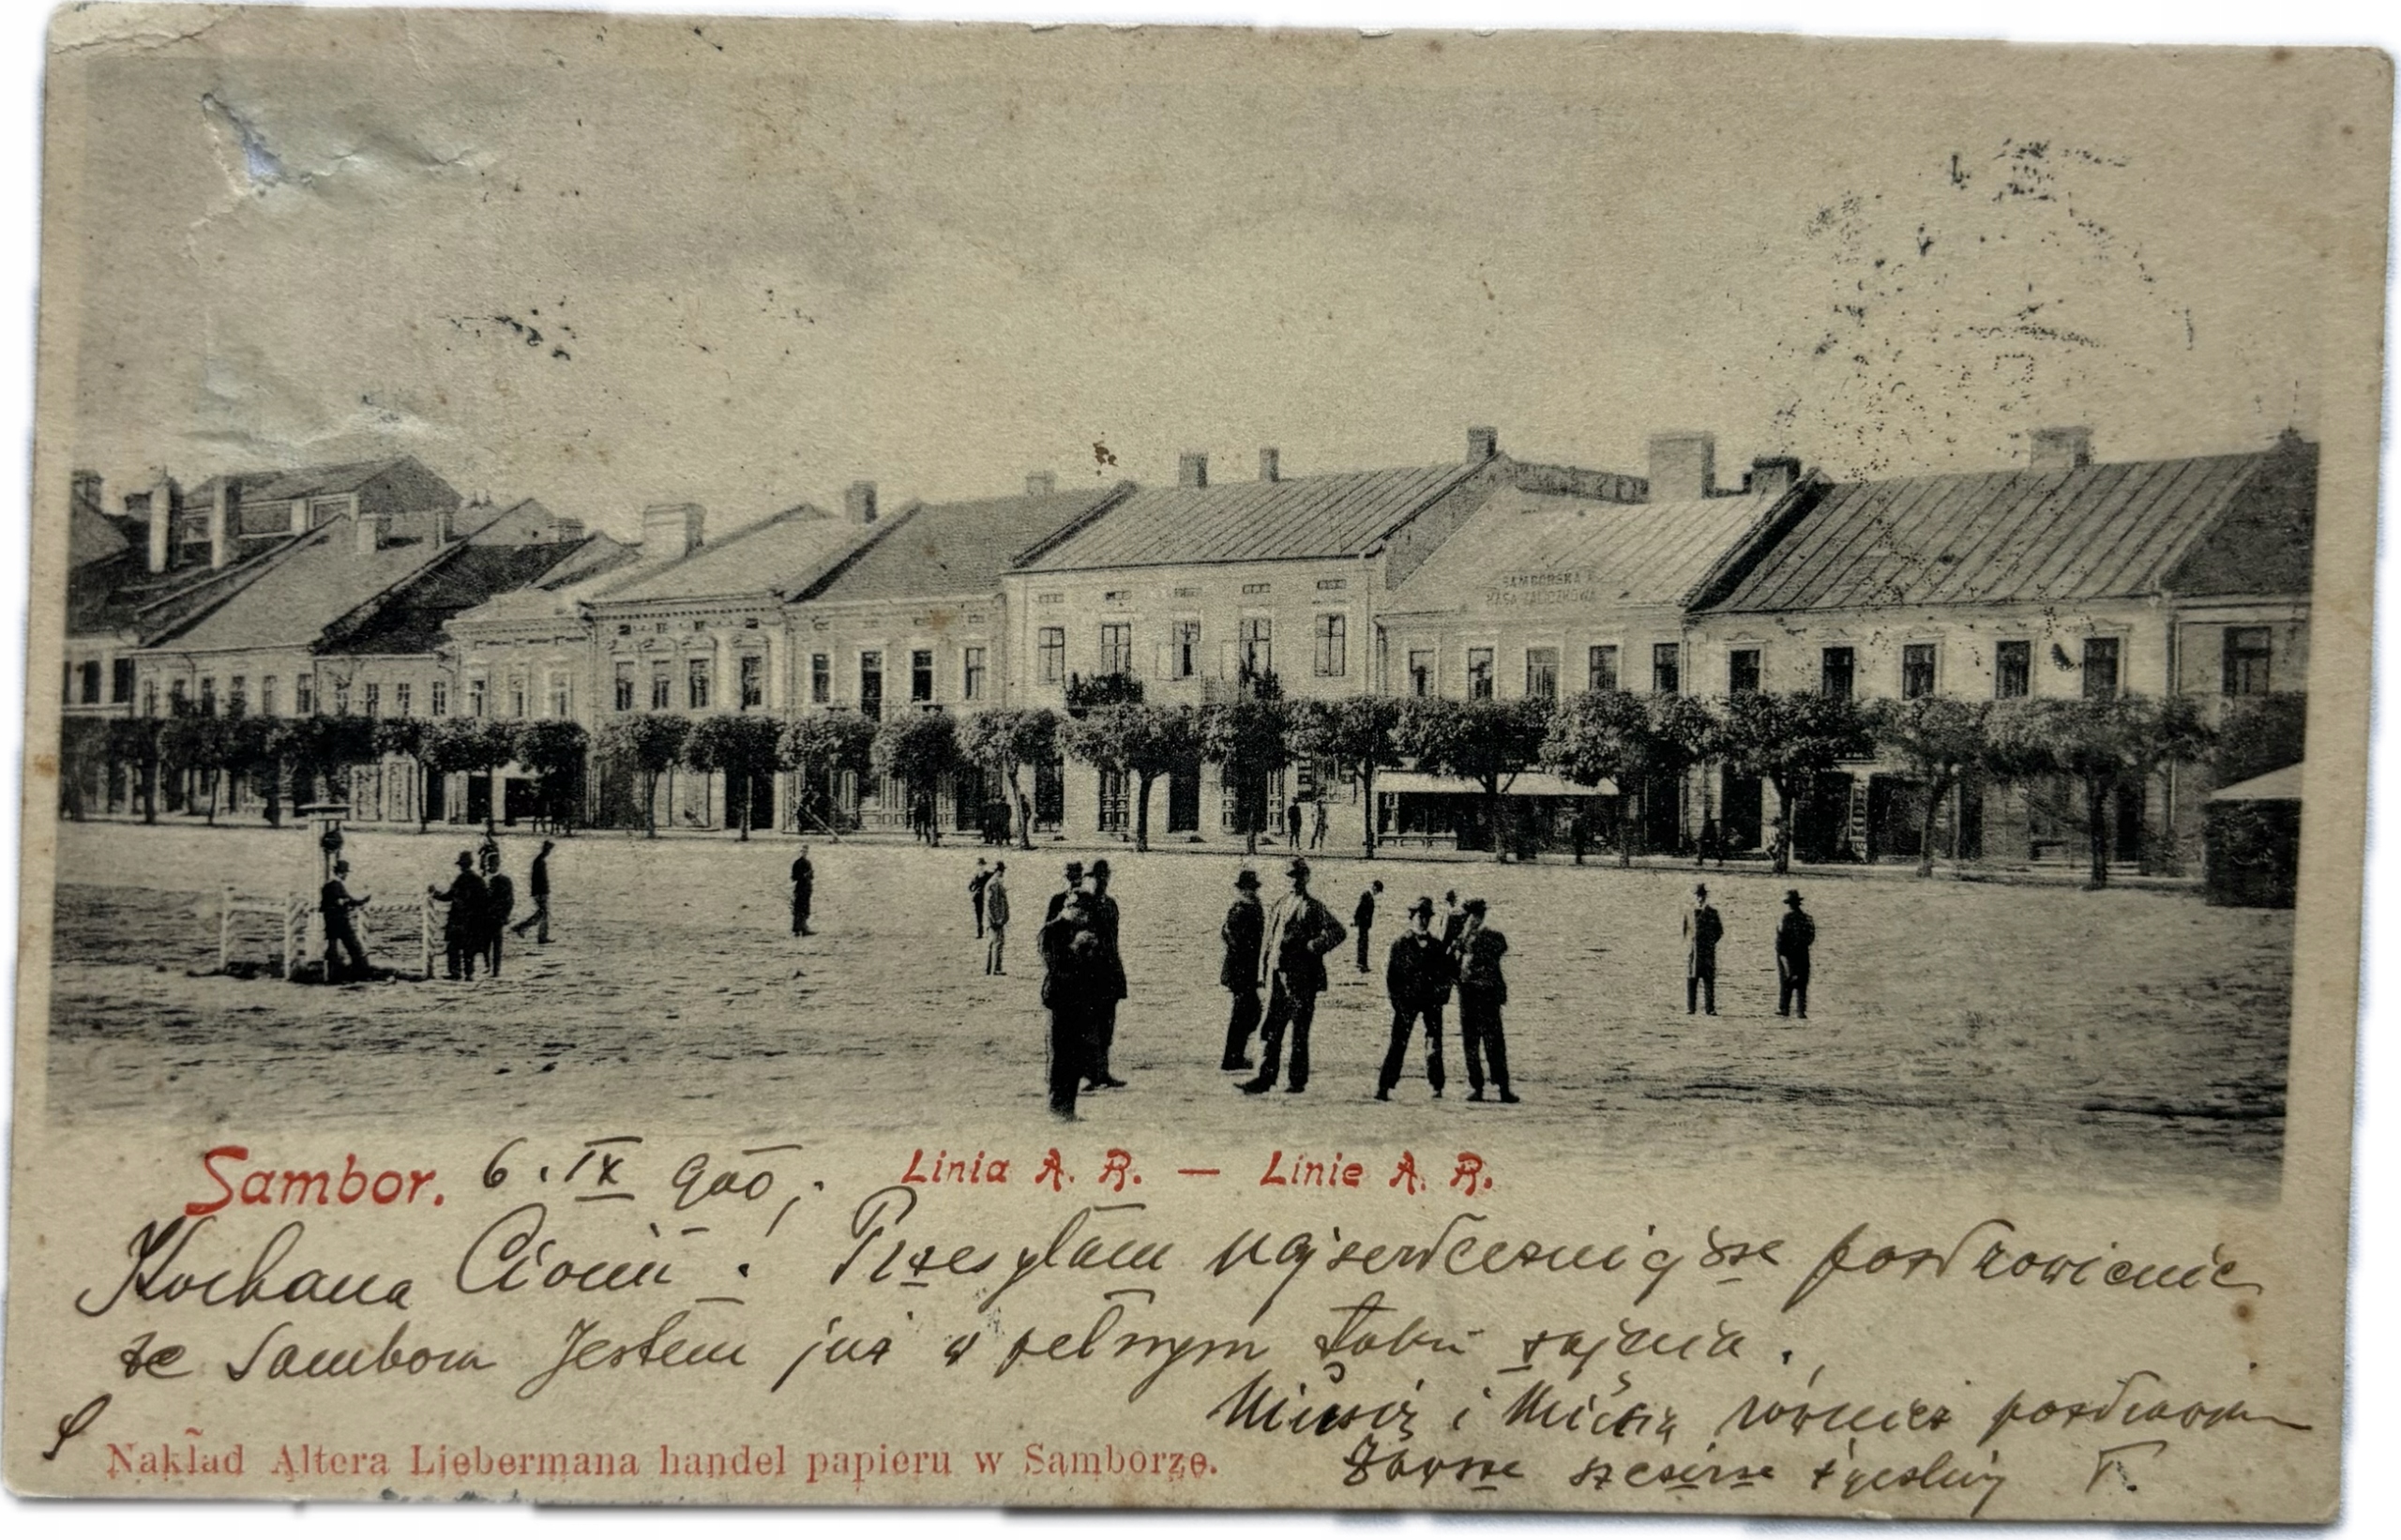 SAMBORSKA
KASA ZALICZKOWA
Sambor. 6. IX 900; Linia A. R. — Linie A. R.
Kochana Ciociu! Przesyłam najserdeczniejsze pozdrowienie
ze Sambora Jestem już w pełnym toku zajęcia.
i również pozdrawiam
Nakład Altera Liebermana handel papieru w Samborze.
Zawsze szczerze życzliwy F.